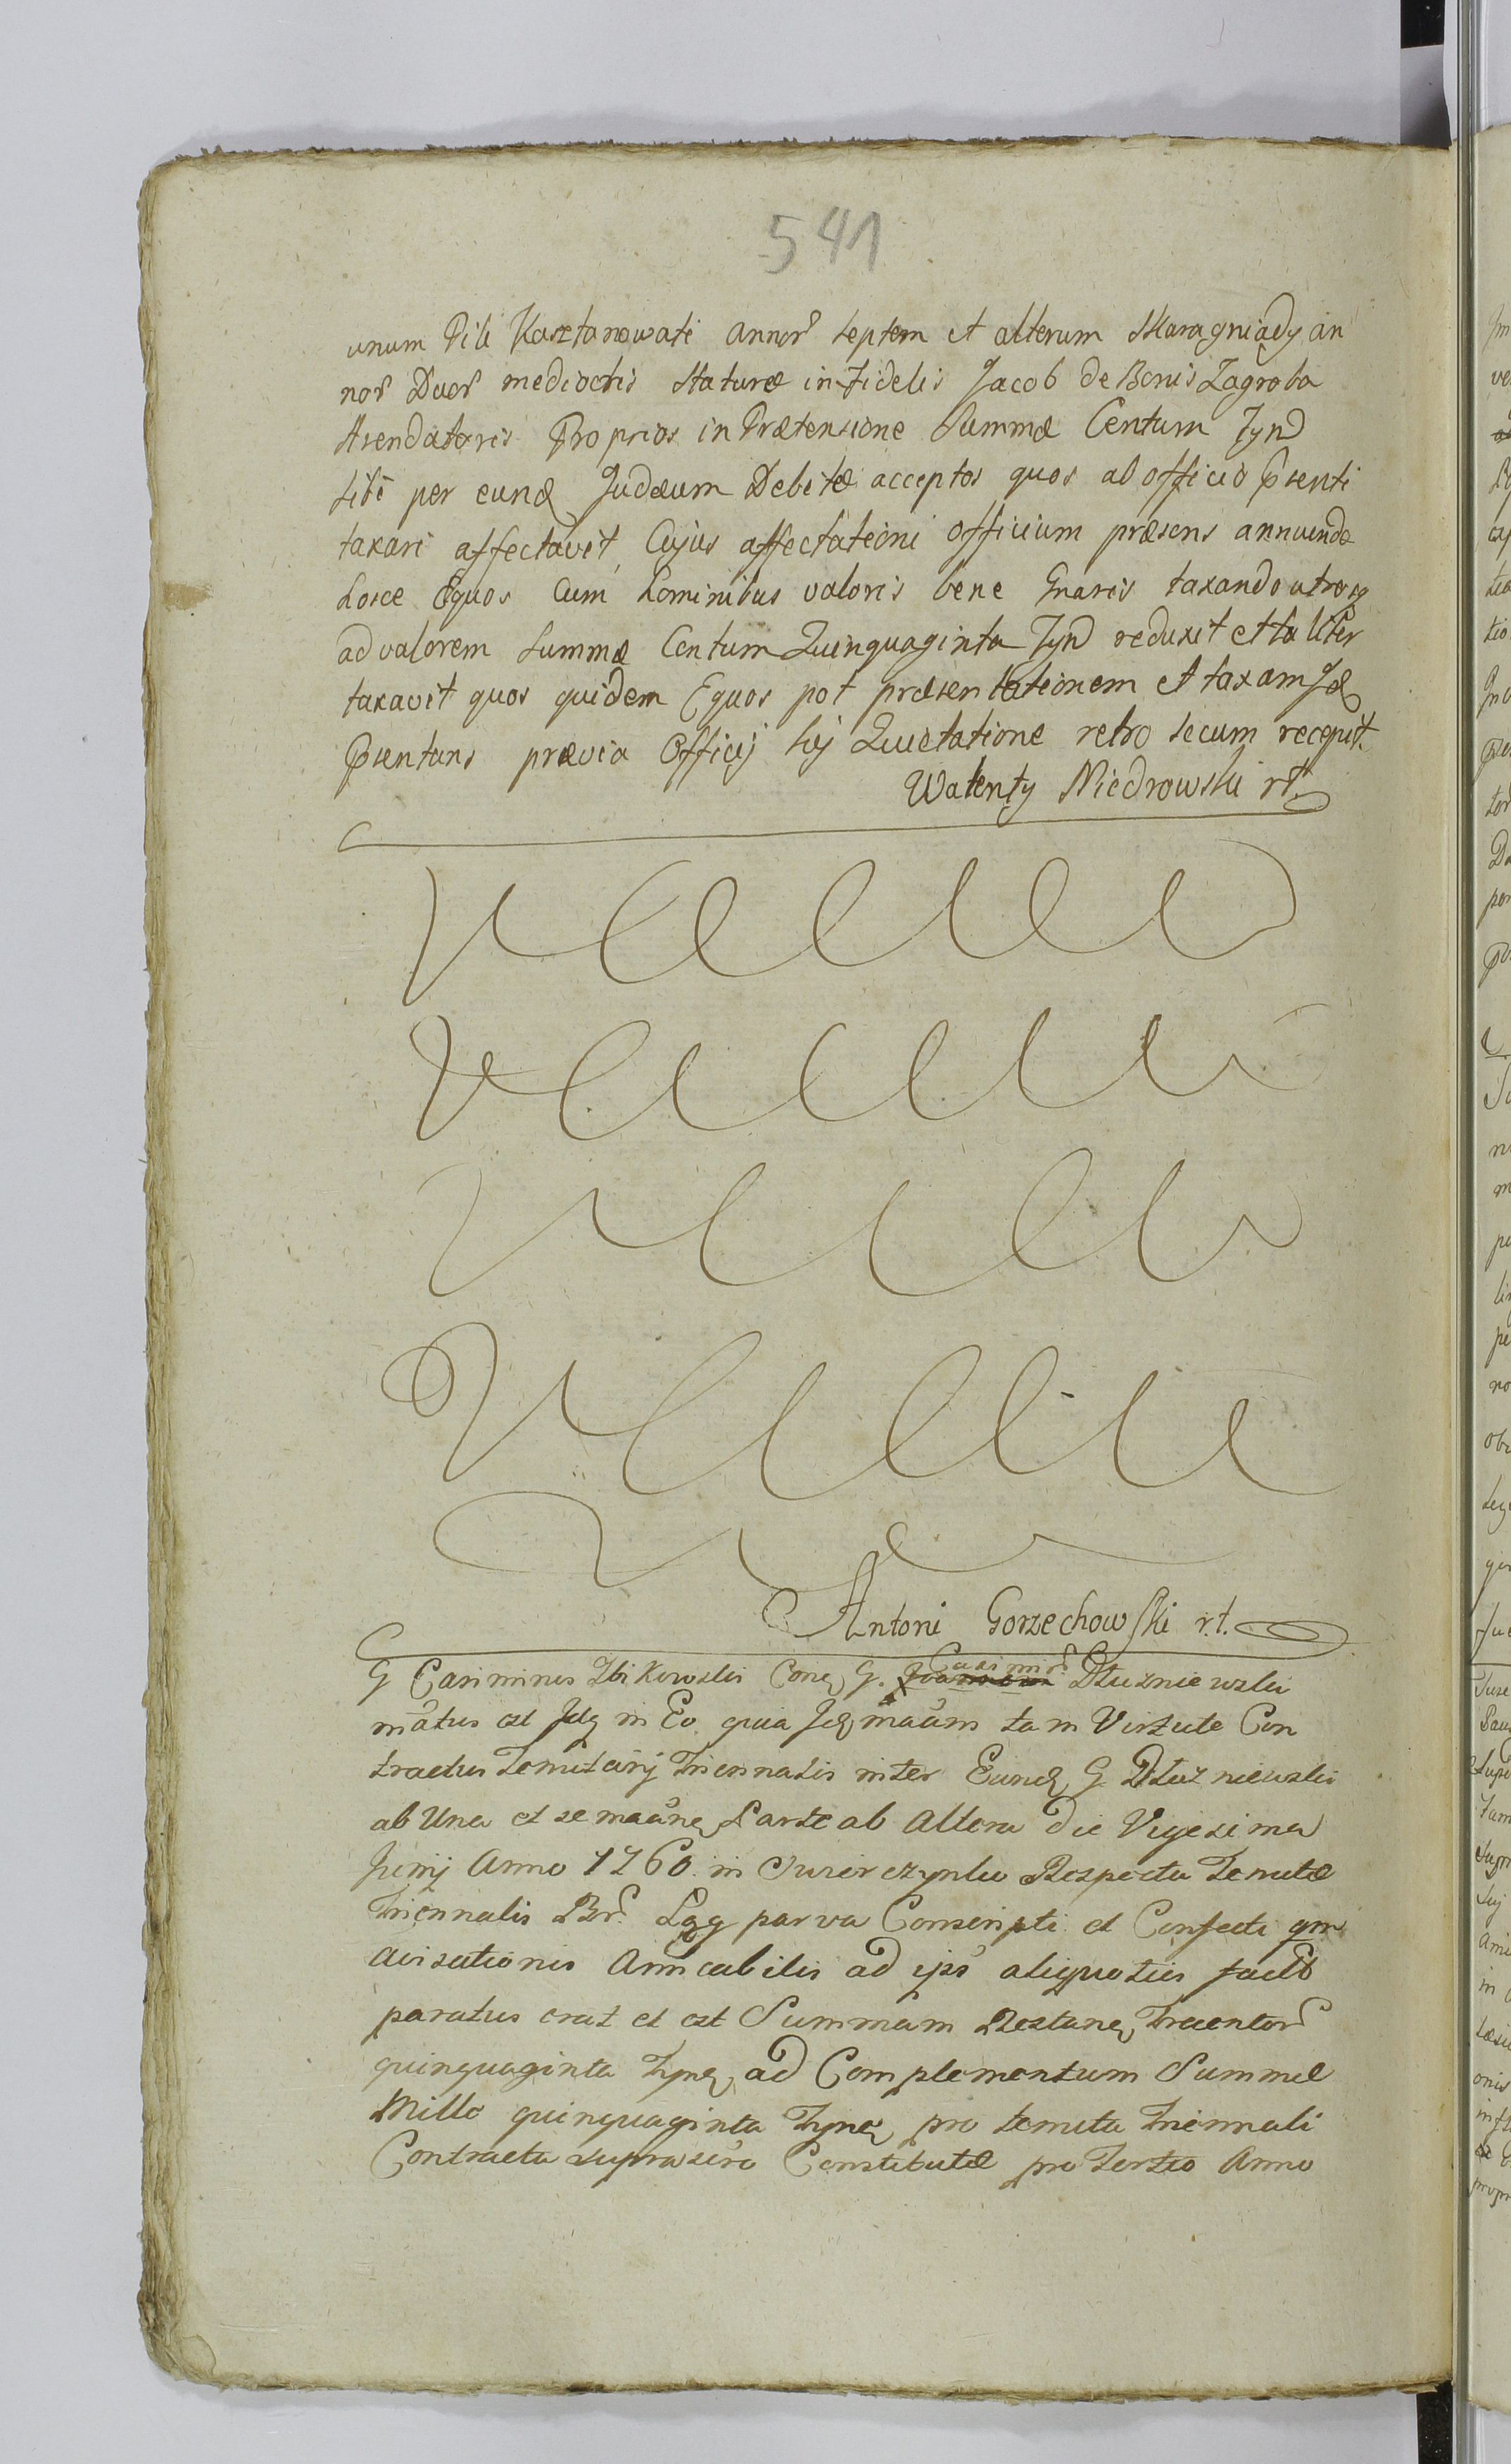 541
unum Pili Kasztanowati annor septem et alterum Skarogniady an
nor Duor mediocris staturæ infidelis Jacob de Bonis Zagroba
Arendatoris Proprios in Prætensione Summæ Centum Tynd
sibi per eund Judæum Debitæ acceptos quos ab officio Psenti
taxari affectavit, Cujus affectationi officium præsens annuendo
hosce Equos Cum hominibus valoris bene Gnaris taxando utrosq
ad valorem Summæ Centum Quinquaginta Tynd reduxit et taliter
taxavit quos quidem Equos pot præsentationem et taxam Id
Psentans prævia Officij huj Quietatione retro secum recepit.
Walenty Niedrowski rt
Antoni Gorzechowski r.t.
G Casimirus Zbikowski Cong G. Casimir Dłużniewski
matus est Idq in Eo quia Idq maum tam Virtute Con
tractus Tenutarij Triennalis inter Eundq G Dłużniewski
ab Una et se maunq Parte ab Altera die Vigesima
Junij Anno 1760 in Respectu Tenutæ
Triennalis Bor. Lgg parva Conscripti et Confecti qm
avisationis Amicabilis ad ips aliquoties fact
paratus erat et est Summam Restanq Trecentor
quinquaginta Tynq ad Complementum Summæ
Mille quinquaginta Tynq pro tenuta Triennali
Contractu supra Constitutæ pro Tertio Anno